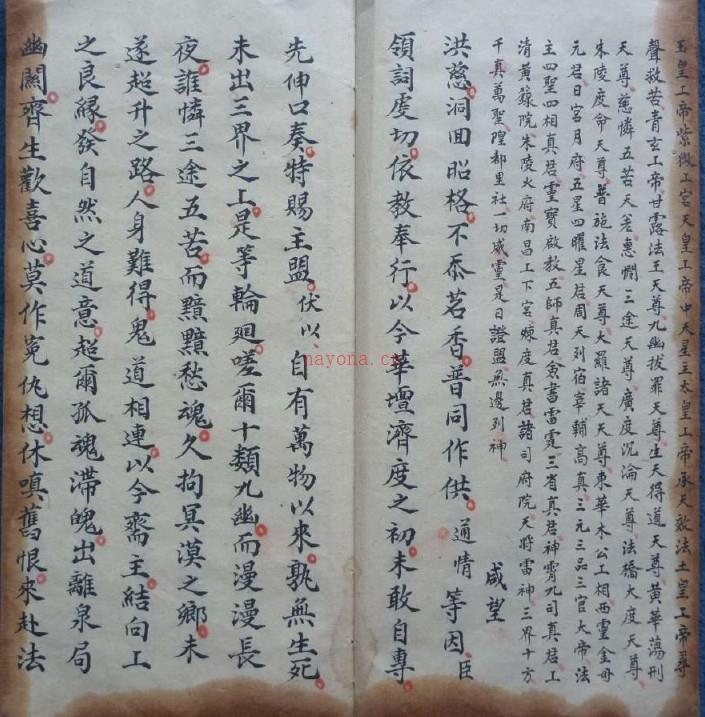 玉皇上帝紫微上宮天皇上帝中天星主太皇上帝承天效法土皇上帝尋
聲救苦青玄上帝甘露法王天尊九幽拔罪天尊生天得道天尊黃華蕩刑
天尊慈憐五苦天尊惠憫三途天尊廣度沉淪天尊法橋大度天尊
朱陵度命天尊普施法食天尊大羅諸天天尊東華木公上相西靈金母
元君日宮月府五星四曜星君周天列宿宰輔高真三元三品三官大帝法
主四聖四相真君靈寶啟教五師真君籙書雷霆三省真君神霄九司真君上
清黃籙院朱陵火府南昌上下宮煉度真君諸司府院天將雷神三界十方
千真萬聖隍都里社一切威靈是日證盟無邊列神
咸望
洪慈洞回昭格不忝茗香普同作供通情等因臣
領詞虔切依教奉行以今華壇濟度之初未敢自專
先伸口奏特賜主盟伏以自有萬物以來孰無生死
未出三界之上是等輪廻嗟爾十類九幽而漫漫長
夜誰憐三途五苦而黯黯愁魂久拘冥漠之鄉未
遂超升之路人身難得鬼道相連以今齋主結向上
之良緣發自然之道意超爾孤魂滯魄出離泉局
幽關齊生歡喜心莫作冤仇想休嗔舊恨來赴法
nayona.cn